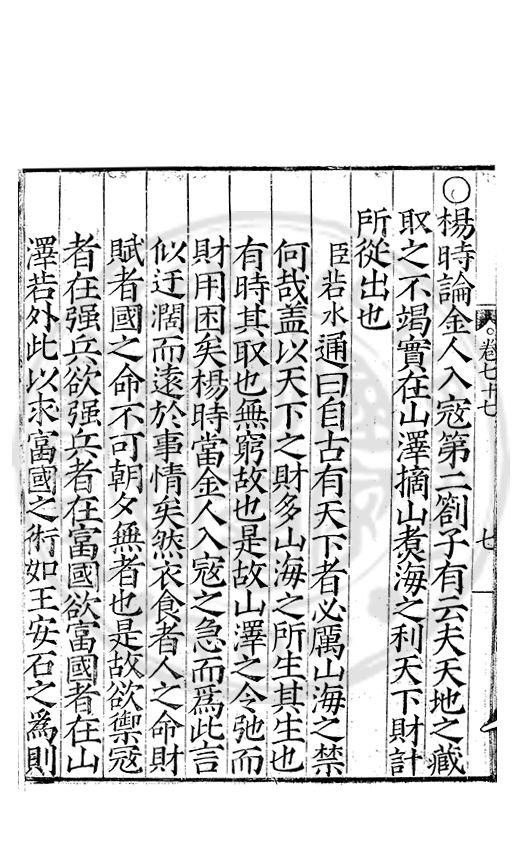 卷七十七
七
○楊時論金人入寇第二劄子有云夫天地之藏
取之不竭實在山澤摘山煮海之利天下財計
所從出也
臣若水通曰自古有天下者必厲山海之禁
何哉蓋以天下之財多山海之所生其生也
有時其取也無窮故也是故山澤之令弛而
財用困矣楊時當金人入寇之急而爲此言
似迂濶而遠於事情矣然衣食者人之命財
賦者國之命不可朝夕無者也是故欲禦冦
者在强兵欲强兵者在富國欲富國者在山
澤若外此以求富國之術如王安石之爲則